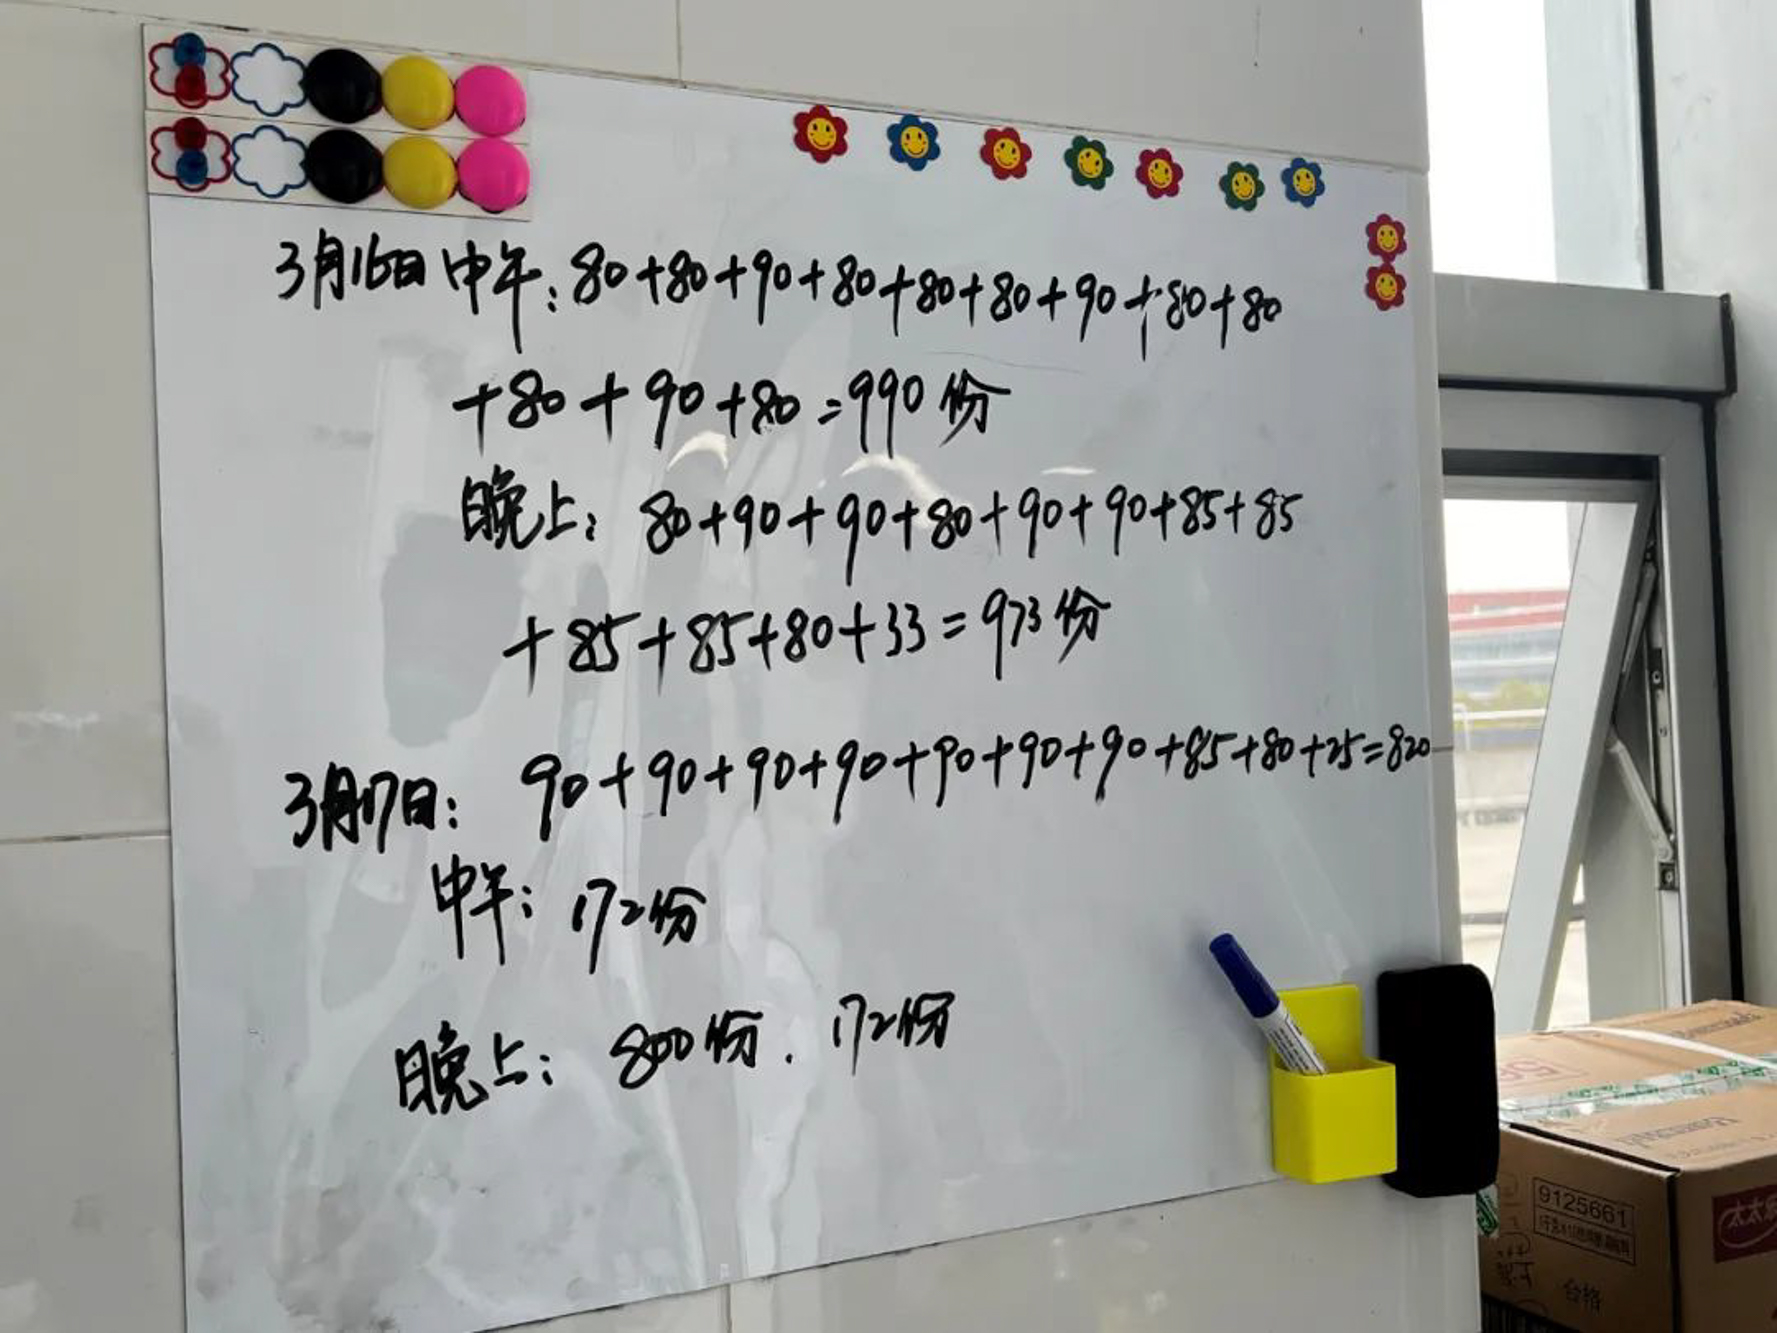 3月16日中午：80+80+90+80+80+80+90+80+80
+80+90+80=990份
晚上：80+90+90+80+90+90+85+85
+85+85+80+33=973份
3月17日：90+90+90+90+90+90+90+85+80+25=820
中午：172份
晚上：800份．172份
9125661
合格
太太乐